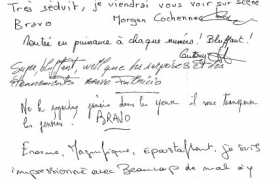 Très séduit, je viendrai vous voir sur scène
Bravo Morgan Cochennec
Montée en puissance à chaque numéro! Bluffant!
Super, bluffant, well que des surprises et des
BRAVO Patricio
Ne le regardez jamais dans les yeux il vous transperce
les pensées. BRAVO
Énorme, Magnifique, époustouflant, je suis
impressionné avec Beaucoup de mal à y